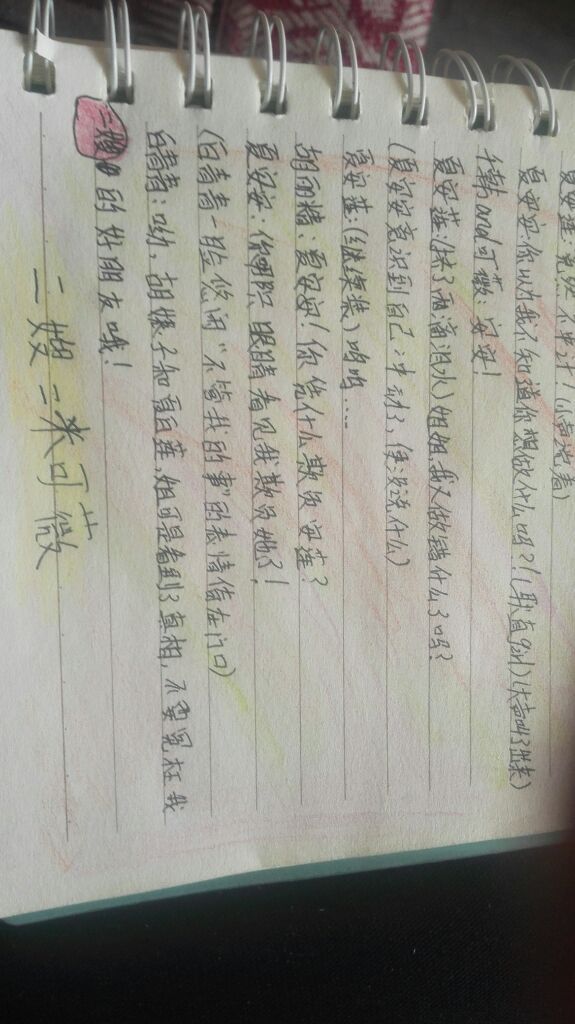 夏安莲:竟然不中计!(小声地着)
夏安安:你以为我不知道你想做什么吗?!(耿直girl)(大声叫了出来)
and可薇:安安!
夏安莲:(挤了两滴泪水)姐姐,我又做错什么了吗?
(夏安安意识到自己冲动了,便没说什么)
夏安莲:(继续装)呜呜....
胡丽精:夏安安!你凭什么欺负安莲?
夏安安:你哪只眼睛看见我欺负她了!
(白青青一脸悠闲“不管我的事”的表情倚在门口)
白青青:呦,胡婊子和夏白莲,姐可是看到了真相,不要冤枉我
的好朋友哦!
二嫂—米可薇